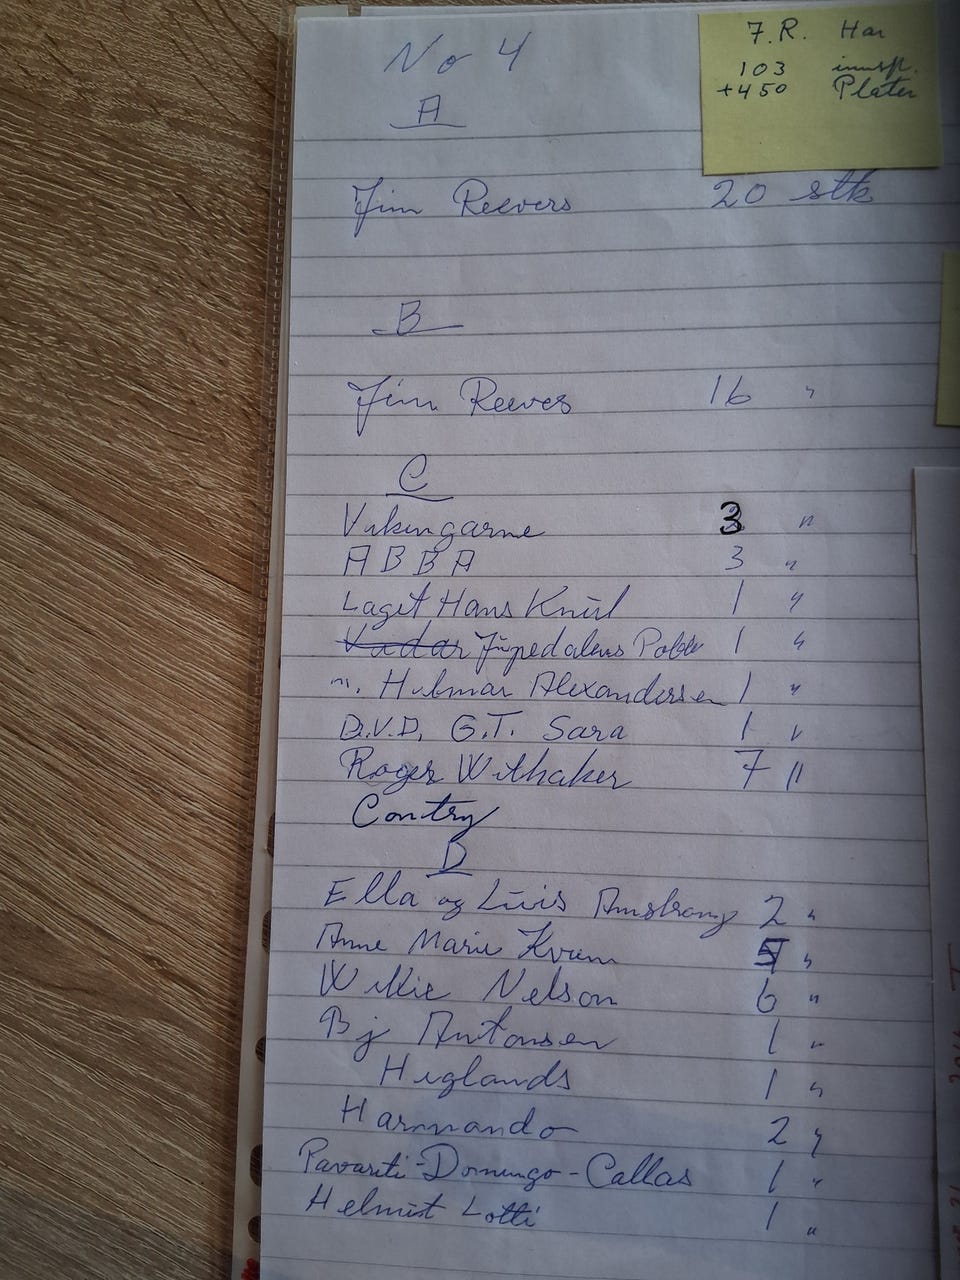 No 4
7.R. Har
103 innsp.
+450 Plater
A
Jim Reevers 20 stk
B
Jim Reeves 16 "
C
Vikingarne 3 "
ABBA 3 "
Laget Hans Knut 1 "
Vadar Jupedalens 1 "
". Hilmar Alexandersen 1 "
D.V.D. G.T. Sara 1 "
Roger Withaker 7 "
Contry
D
Ella og Luis Amstrong 2 "
Anne Marie Kvam 5 "
Willie Nelson 6 "
Bj Antonsen 1 "
Higlands 1 "
Harmando 2 "
Pavariti-Domingo-Callas 1 "
Helmut Lotti 1 "